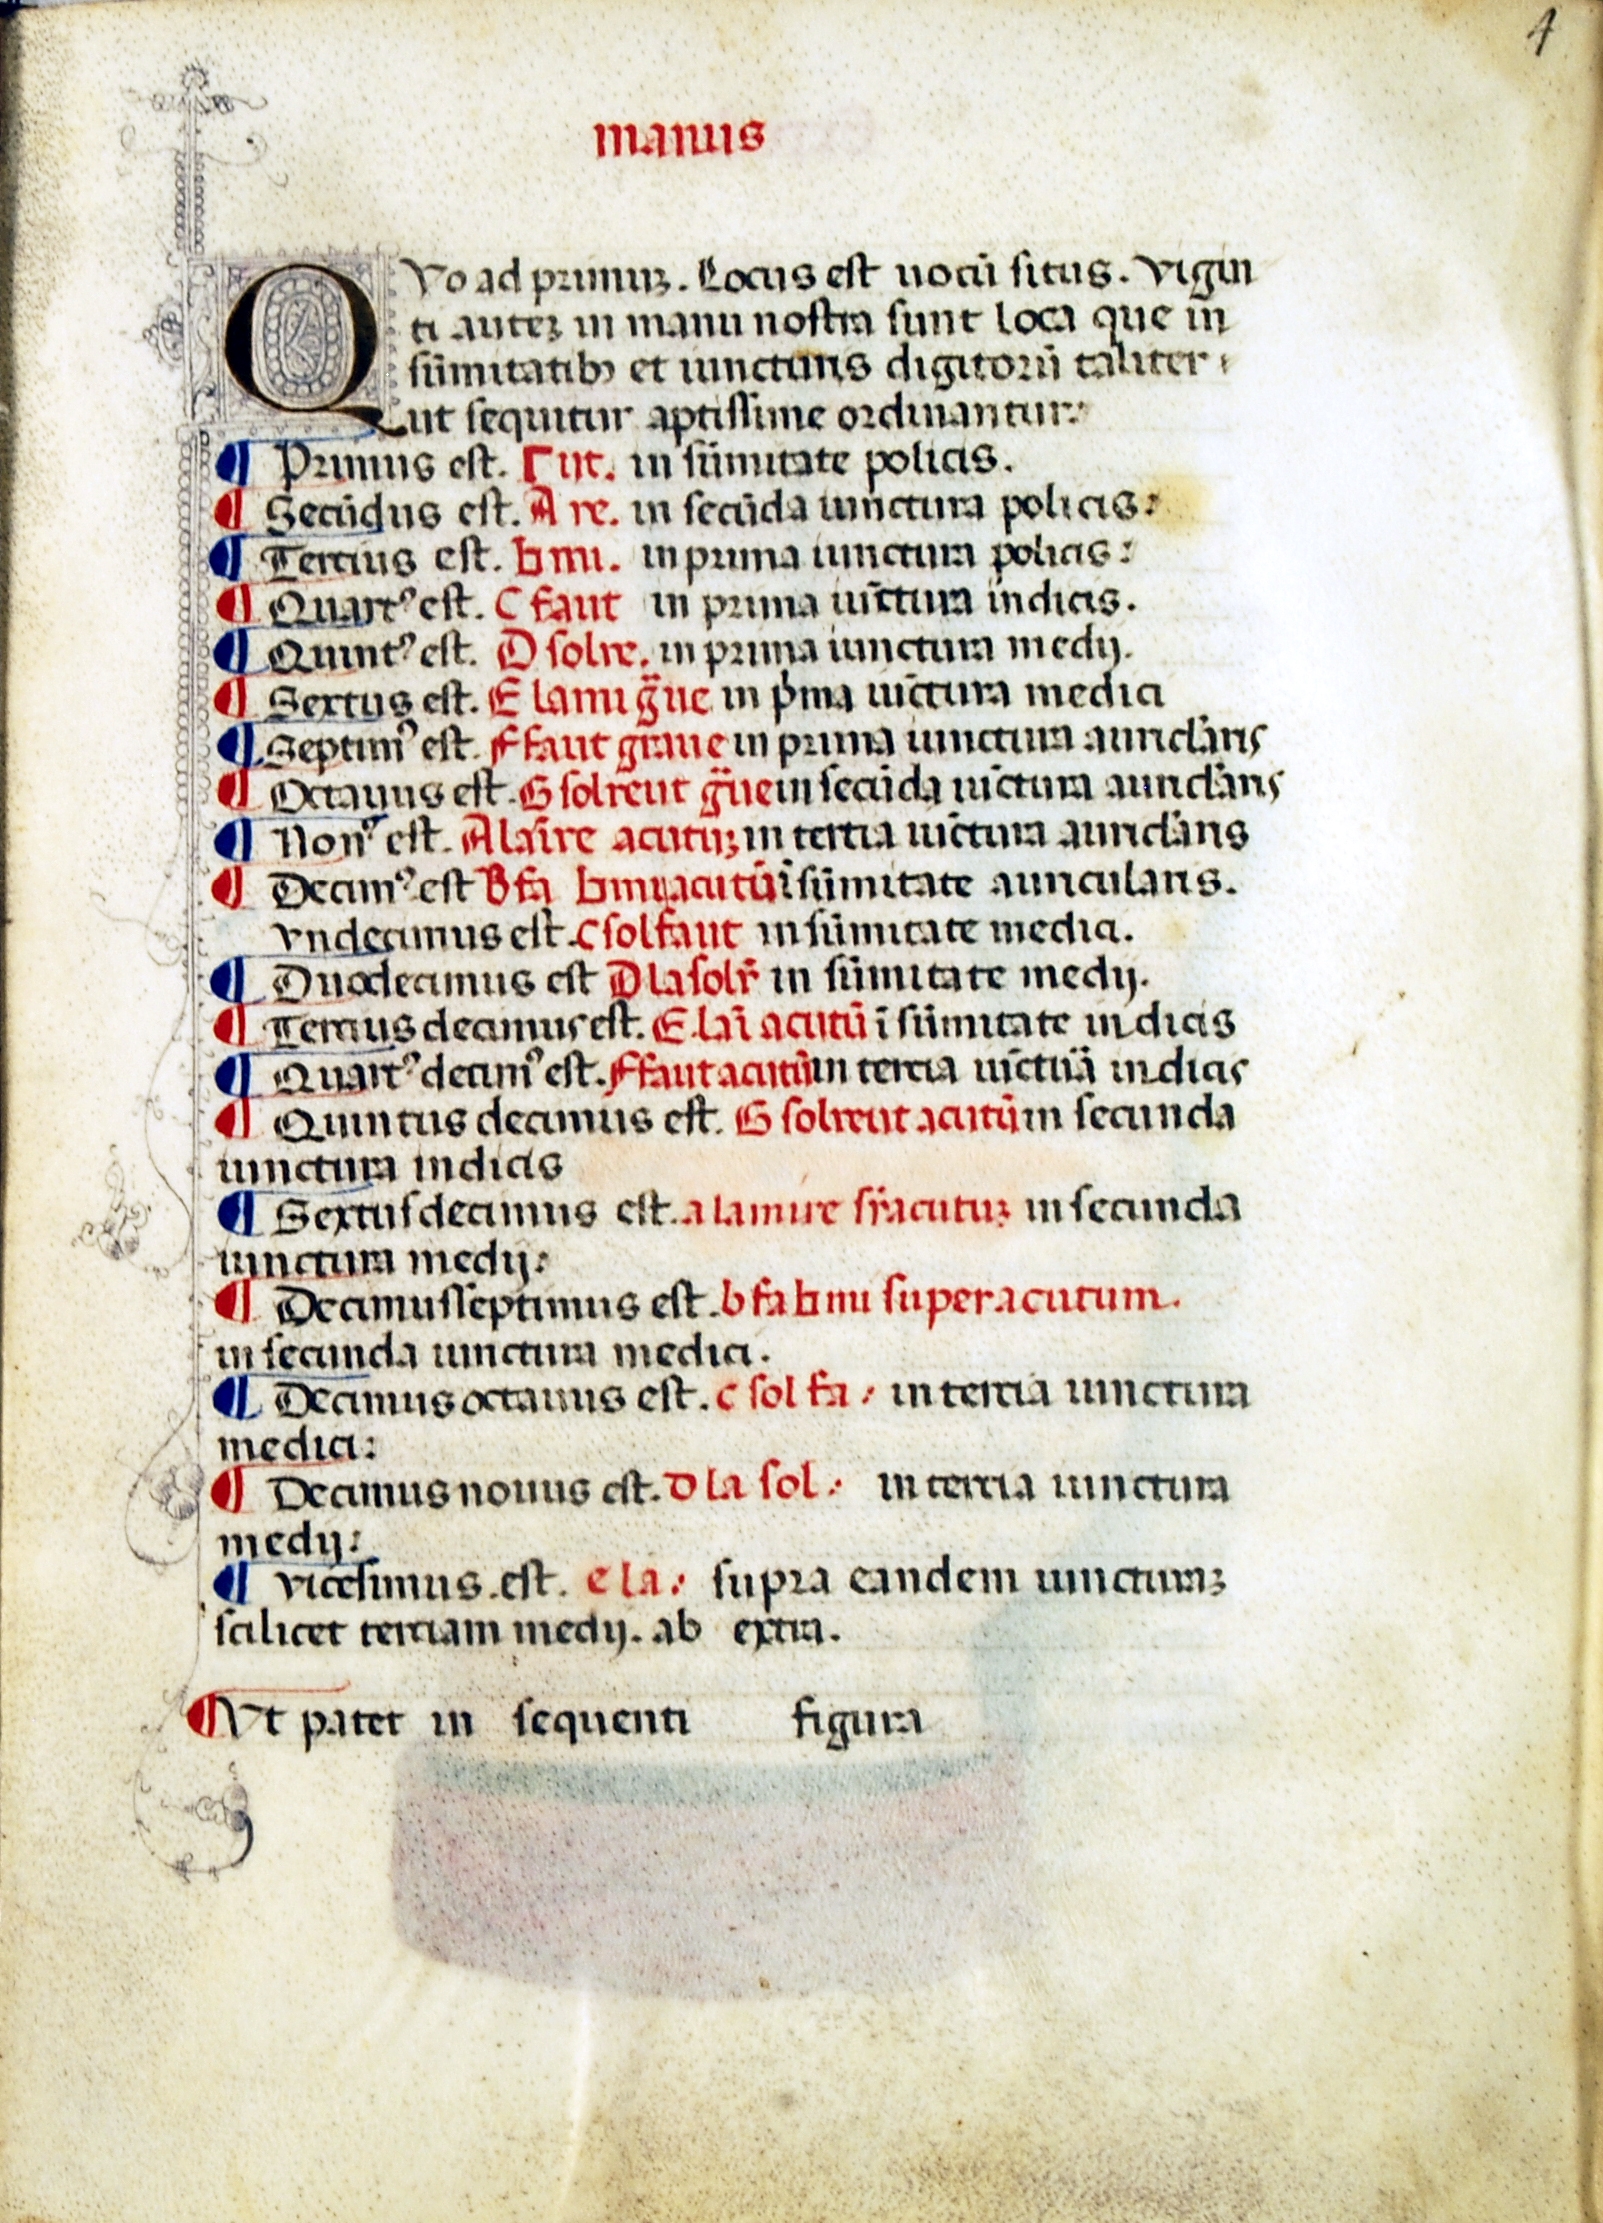 4
manus
QVo ad primuꝫ. Locus est uocū situs. Vigin
ti auteꝫ in manu nostra sunt loca que in
sūmitatibꝰ et iuncturis digitorū taliter
ut sequitur aptissime ordinantur:
¶ Primus est. Γ ut. in sūmitate policis.
¶ Secūdus est. A re. in secūda iunctura policis:
¶ Tertius est. ♮ mi. in prima iunctura policis:
¶ Quartꝰ est. C faut in prima iūctura indicis.
¶ Quintꝰ est. D solre. in prima iunctura medij.
¶ Sextus est. E lami g̃ue in p̃ma iūctura medici
¶ Septimꝰ est. F faut graue in prima iunctura auricl̃aris
¶ Octauus est. G solreut g̃ue in secūda iūctura auricl̃aris
¶ Nonꝰ est. A lam̄re acutuꝫ in tertia iūctura auricl̃aris
¶ Decimꝰ est B fa ♮ mi acutū ī sūmitate auricularis.
Vndecimus est. C solfaut in sūmitate medici.
¶ Duodecimus est D lasolr̄ in sūmitate medij.
¶ Tertius decimus est. E laī acutū ī sūmitate indicis
¶ Quartꝰ decimꝰ est. F faut acutū in tertia iūctur̃a indicis
¶ Quintus decimus est. G solreut acutū in secunda
iunctura indicis
¶ Sextus decimus est. a lamire sr̃acutuꝫ in secunda
iunctura medij:
¶ Decimus septimus est. b fa ♮ mi superacutum.
in secunda iunctura medici.
¶ Decimus octauus est. c sol fa: in tertia iunctura
medici:
¶ Decimus nonus est. d la sol: in tertia iunctura
medij:
¶ Vicesimus est. e la: supra eandem iuncturaꝫ
scilicet tertiam medij. ab extra.
¶ Vt patet in sequenti figura